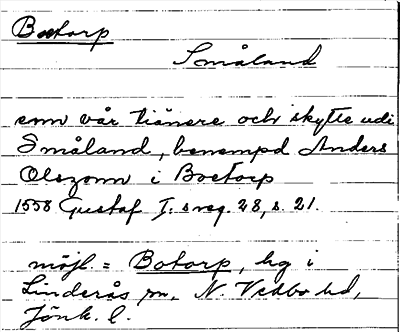 Boetorp
Småland
som vår tiänere och skytte udi
Småland, benempd Anders
Olszonn i Boetorp
1558 Gustaf I:s reg. 28, s. 21.
möjl. = Botorp, hg i
Linderås sn, N. Vedbo hd,
Jönk. l.